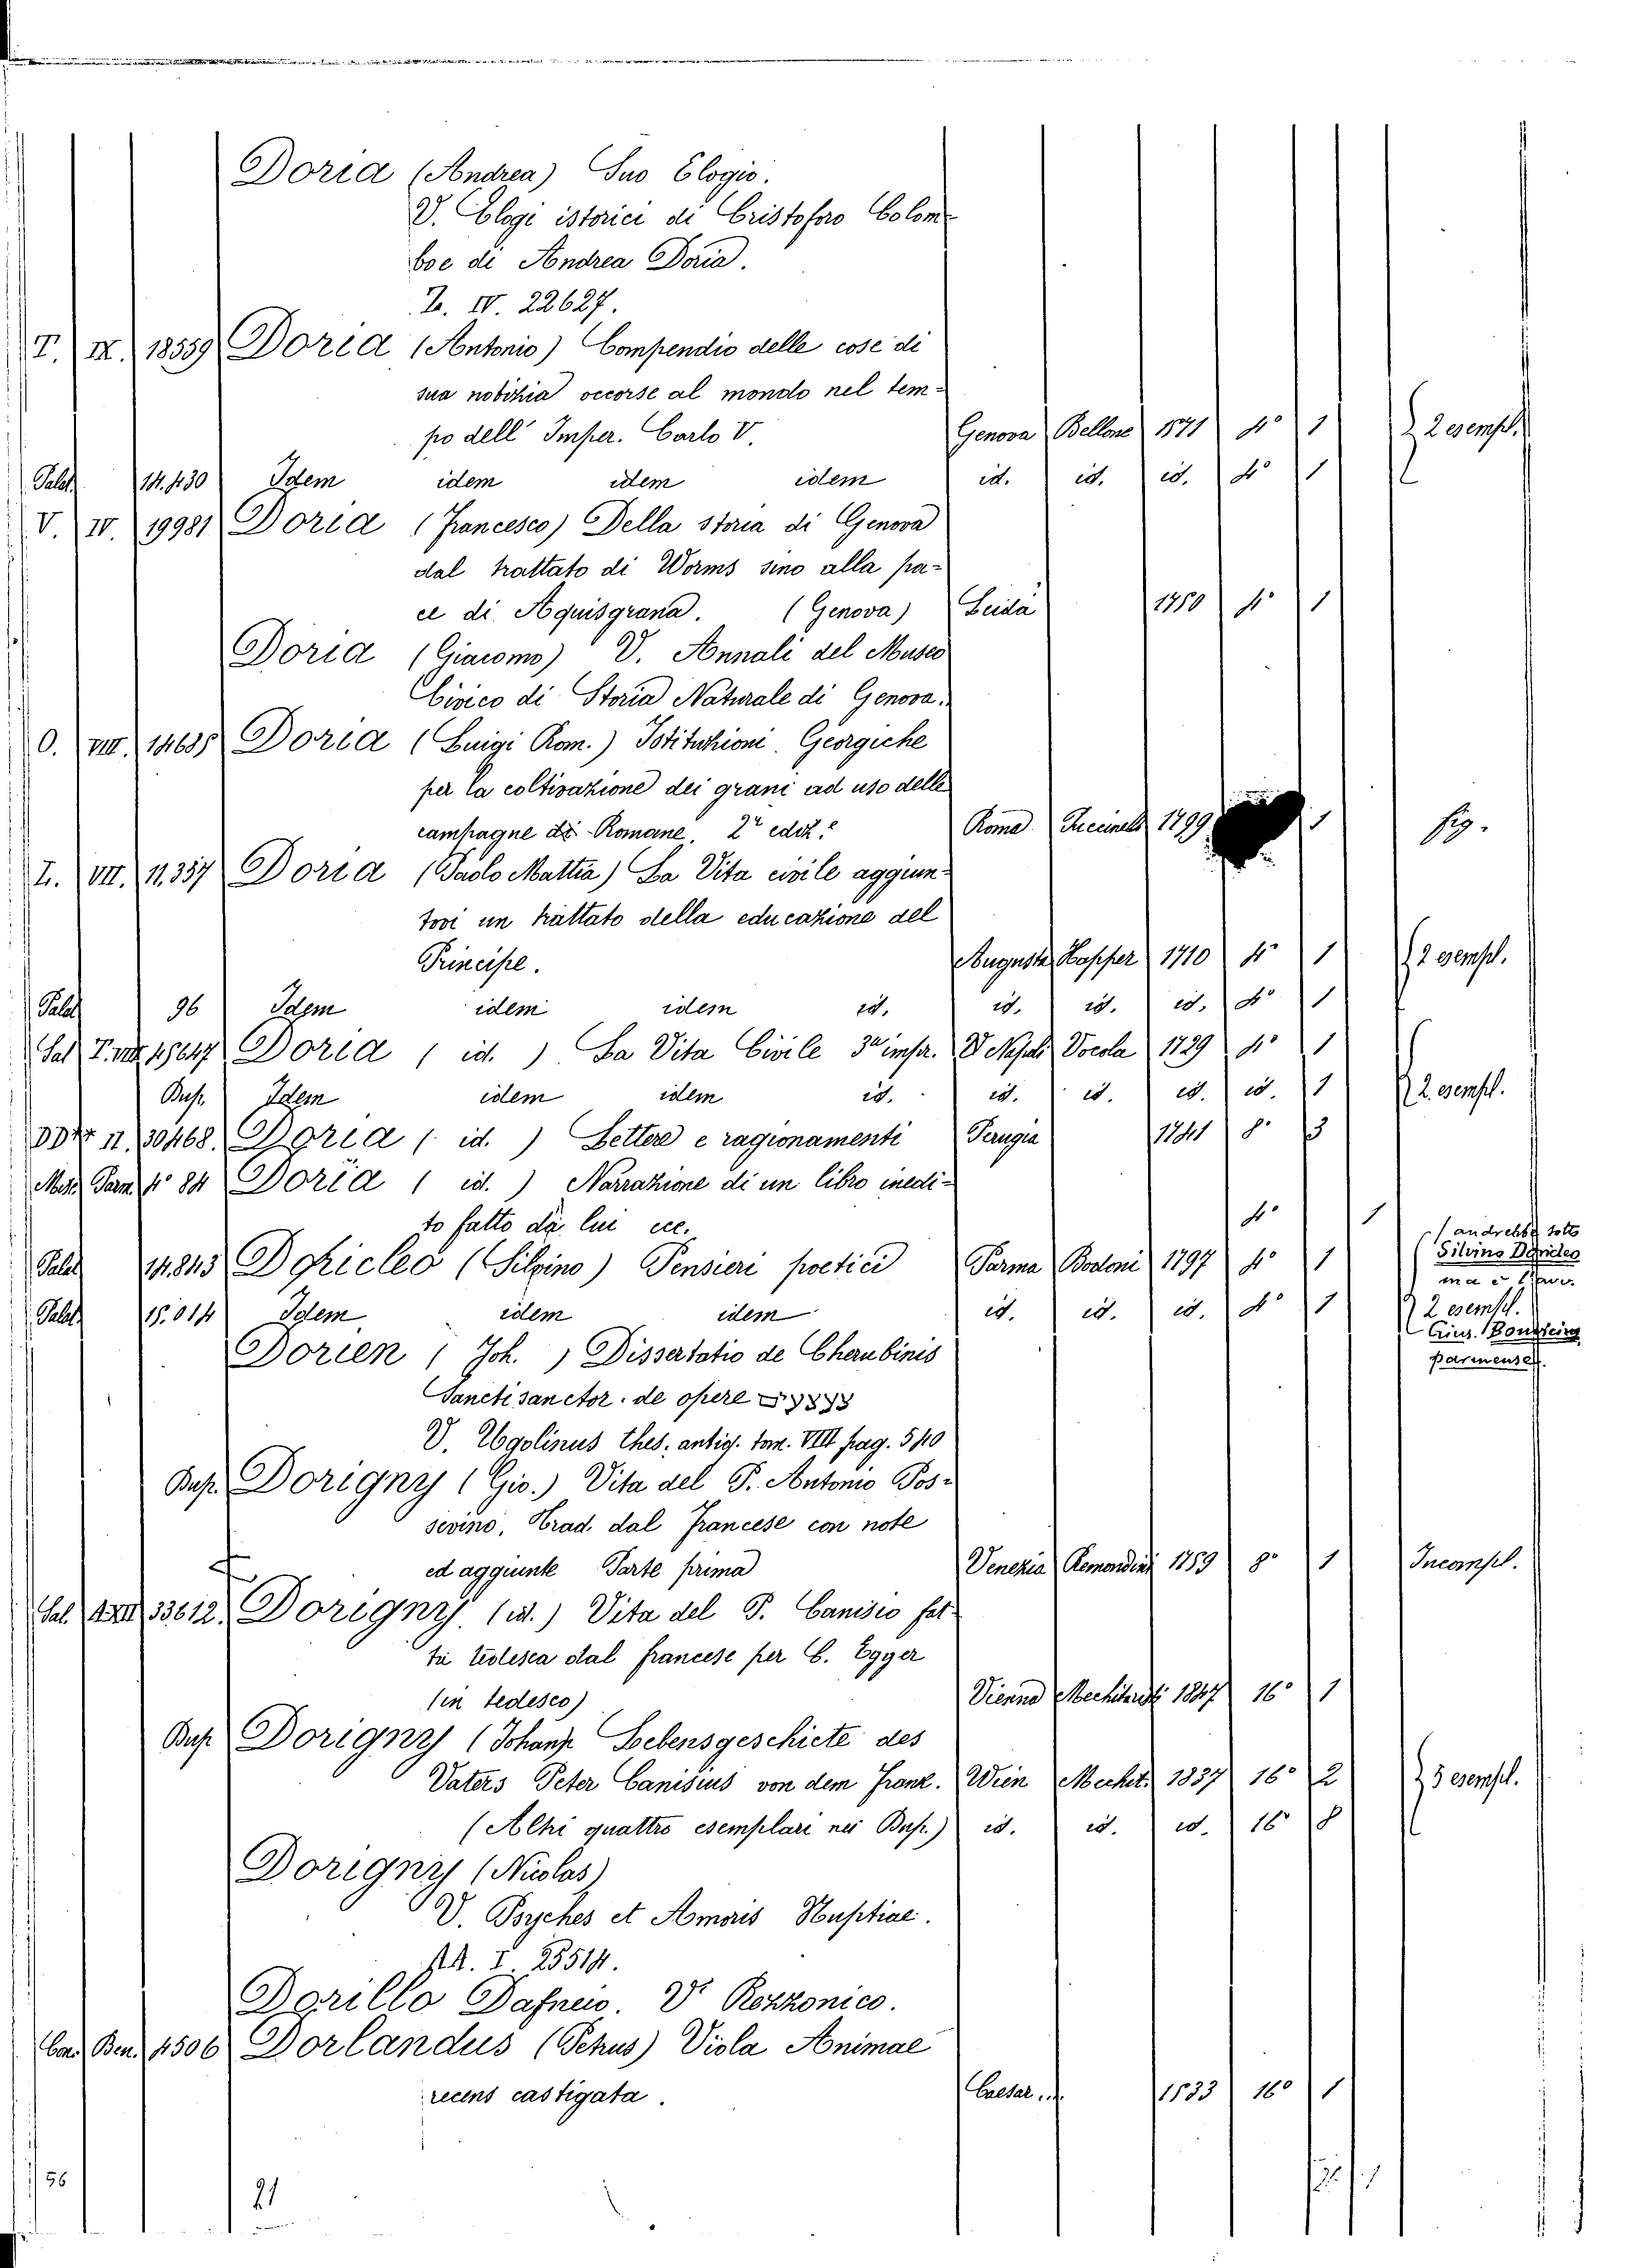 Doria (Andrea) Suo Elogio.
V. Elogi istorici di Cristoforo Colom-
bo e di Andrea Doria.
Z. IV. 22627.
T. IX. 18559 Doria (Antonio) Compendio delle cose di
sua nobizia occorse al mondo nel tem-
po dell' Imper. Carlo V. Genova Bellone 1571 4° 1 2 esempl.
Palat. 14.430 Idem idem idem idem id. id. id. 4° 1
V. IV. 19981 Doria (Francesco) Della storia di Genova
dal trattato di Worms sino alla pa-
ce di Aquisgrana. (Genova) Leida 1750 4° 1
Doria (Giacomo) V. Annali del Museo
Civico di Storia Naturale di Genova.
O. VIII. 14635 Doria (Luigi Rom.) Istituzioni Georgiche
per la coltivazione dei grani ad uso delle
campagne Romane. 2ª ediz. Roma 1799 1 fig.
L. VII. 11.357 Doria (Paolo Mattia) La Vita civile aggiun-
tovi un trattato della educazione del
Principe. Augusta Happer 1710 4° 1 2 esempl.
Palat 96 Idem idem idem id. id. id. id. 4° 1
Sal. T. 45647 Doria ( id. ) La Vita Civile 3ª impr. Napoli Vocola 1729 4° 1
Bup. Idem idem idem id. id. id. id. id. 1 2 esempl.
DD II. 30468. Doria ( id. ) Lettere e ragionamenti Perugia 1741 8° 3
Mss. Parm. N° 84 Doria ( id. ) Narrazione di un libro inedi-
to fatto da lui ecc. 4° 1
Palat 14.843 Doricleo (Silvino) Pensieri poetici Parma Bodoni 1797 4° 1
andrebbe sotto
Silvino Doricleo
ma è
Palat. 15.014 Idem idem idem id. id. id. 4° 1 2 esempl.
parmense.
Dorien ( Joh. ) Dissertatio de Cherubinis
Sancti sanctor. de opere
V. Ugolinus thes. antiq. tom. VIII pag. 540
Bup. Dorigny (Gio.) Vita del P. Antonio Pos-
sevino, Trad. dal francese con note
ed aggiunte Parte prima Venezia Remondini 1759 8° 1 Incompl.
Sal. XXII 33612. Dorigny (id.) Vita del P. Canisio fat-
ta tedesca dal francese per C. Egger
(in tedesco) Vienna Mechitaristi 1847 16° 1
Bup Dorigny (Johann Lebensgeschicte des
Vaters Peter Canisius von dem Franz. Wien Mechit. 1837 16° 2 3 esempl.
(Altri quattro esemplari nei Bup.) id. id. id. 16° 8
Dorigny (Nicolas)
V. Psyches et Amoris Nuptiae.
AA. I. 25514.
Dorillo Dafneio. V. Rezzonico.
Con. Ben. 4506 Dorlandus (Petrus) Viola Animae
recens castigata. Caesar. 1533 16° 1
56
21